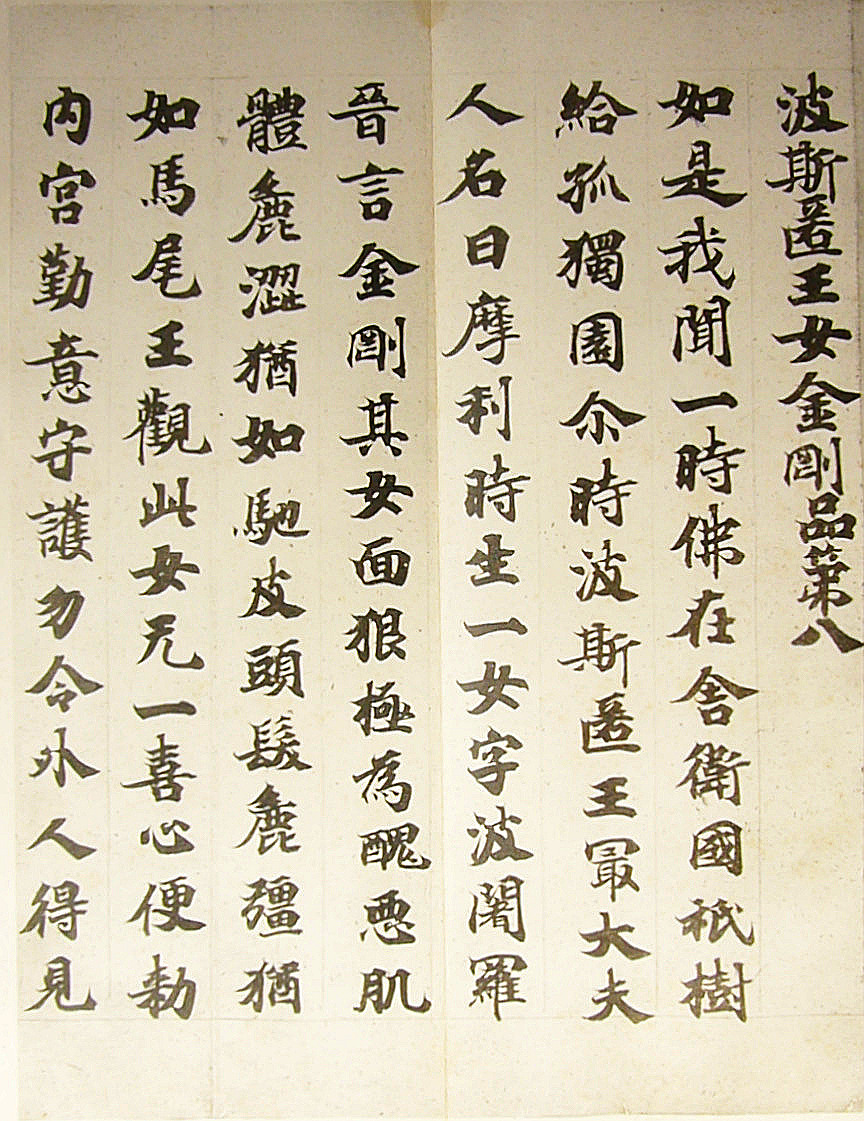 波斯匿王女金剛品第八
如是我聞一時佛在舍衛國祇樹
給孤獨園尒時波斯匿王冣大夫
人名曰摩利時生一女字波闍羅
晉言金剛其女面狠極為醜惡肌
體麁澀猶如馳皮頭髮麁彊猶
如馬尾王觀此女无一喜心便勑
內宮勤意守護勿令外人得見